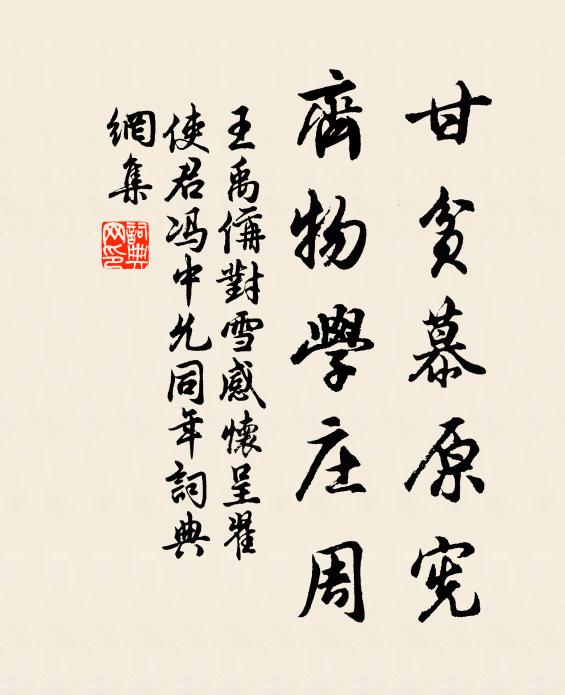 甘贫慕原宪
齊物學庄周
王禹偁對雪感懷呈翟
使君冯中允同年詞典
網集
詞典网印